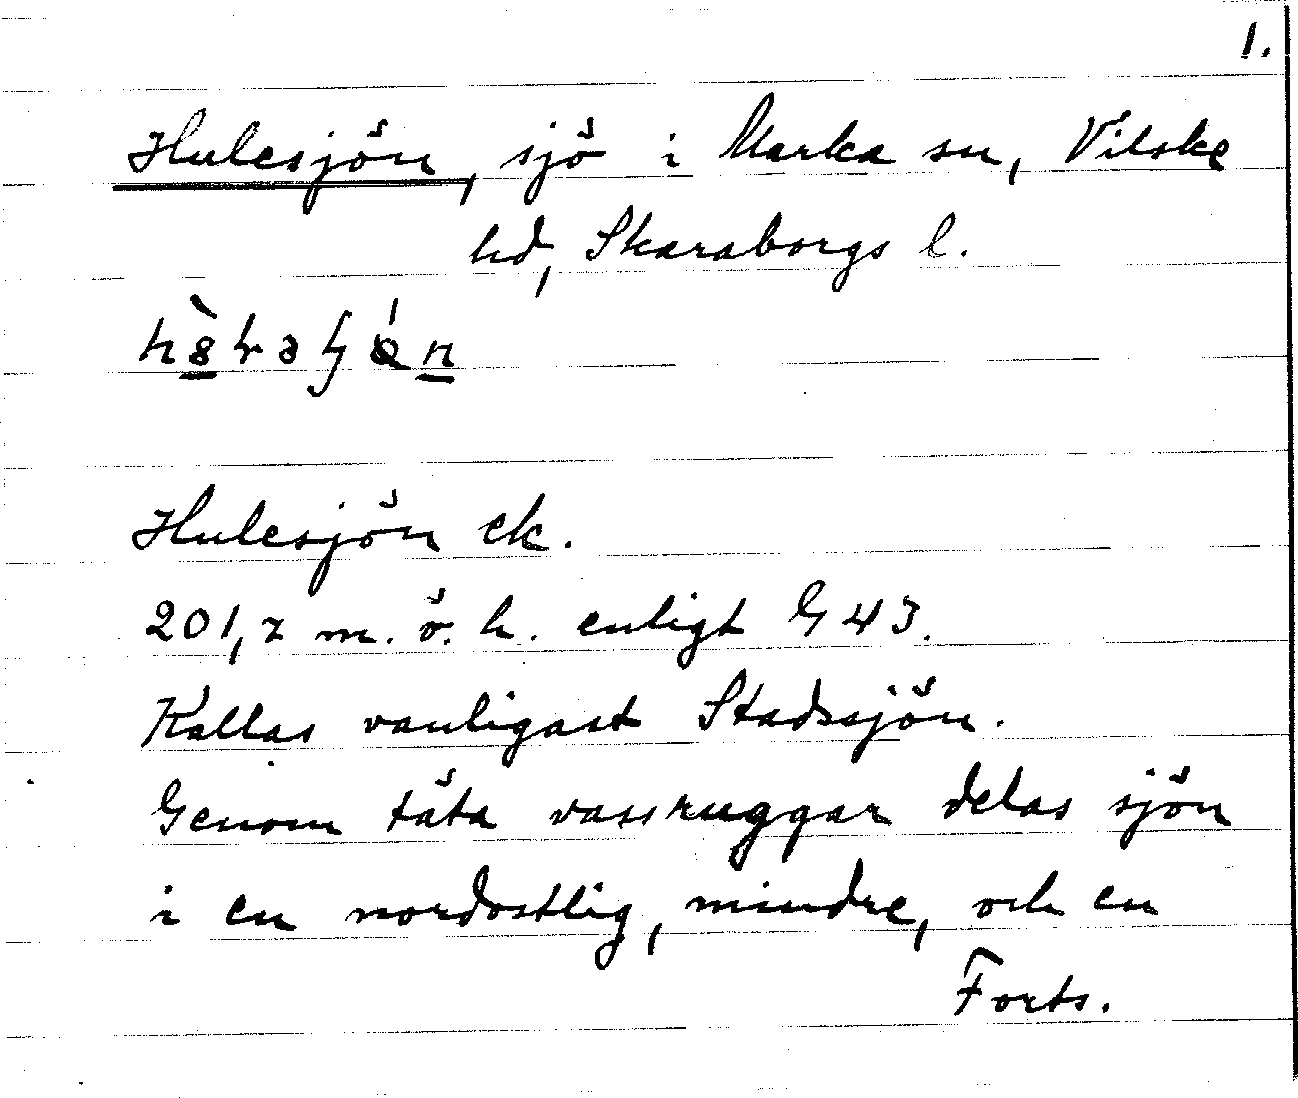 1.
Hulesjön, sjö i Marka sn, Vilske
hd, Skaraborgs l.
Hulesjön ek.
201,2 m. ö. h. enligt G 43.
Kallas vanligast Stadssjön.
Genom täta vassruggar delas sjön
i en nordostlig, mindre, och en
Forts.